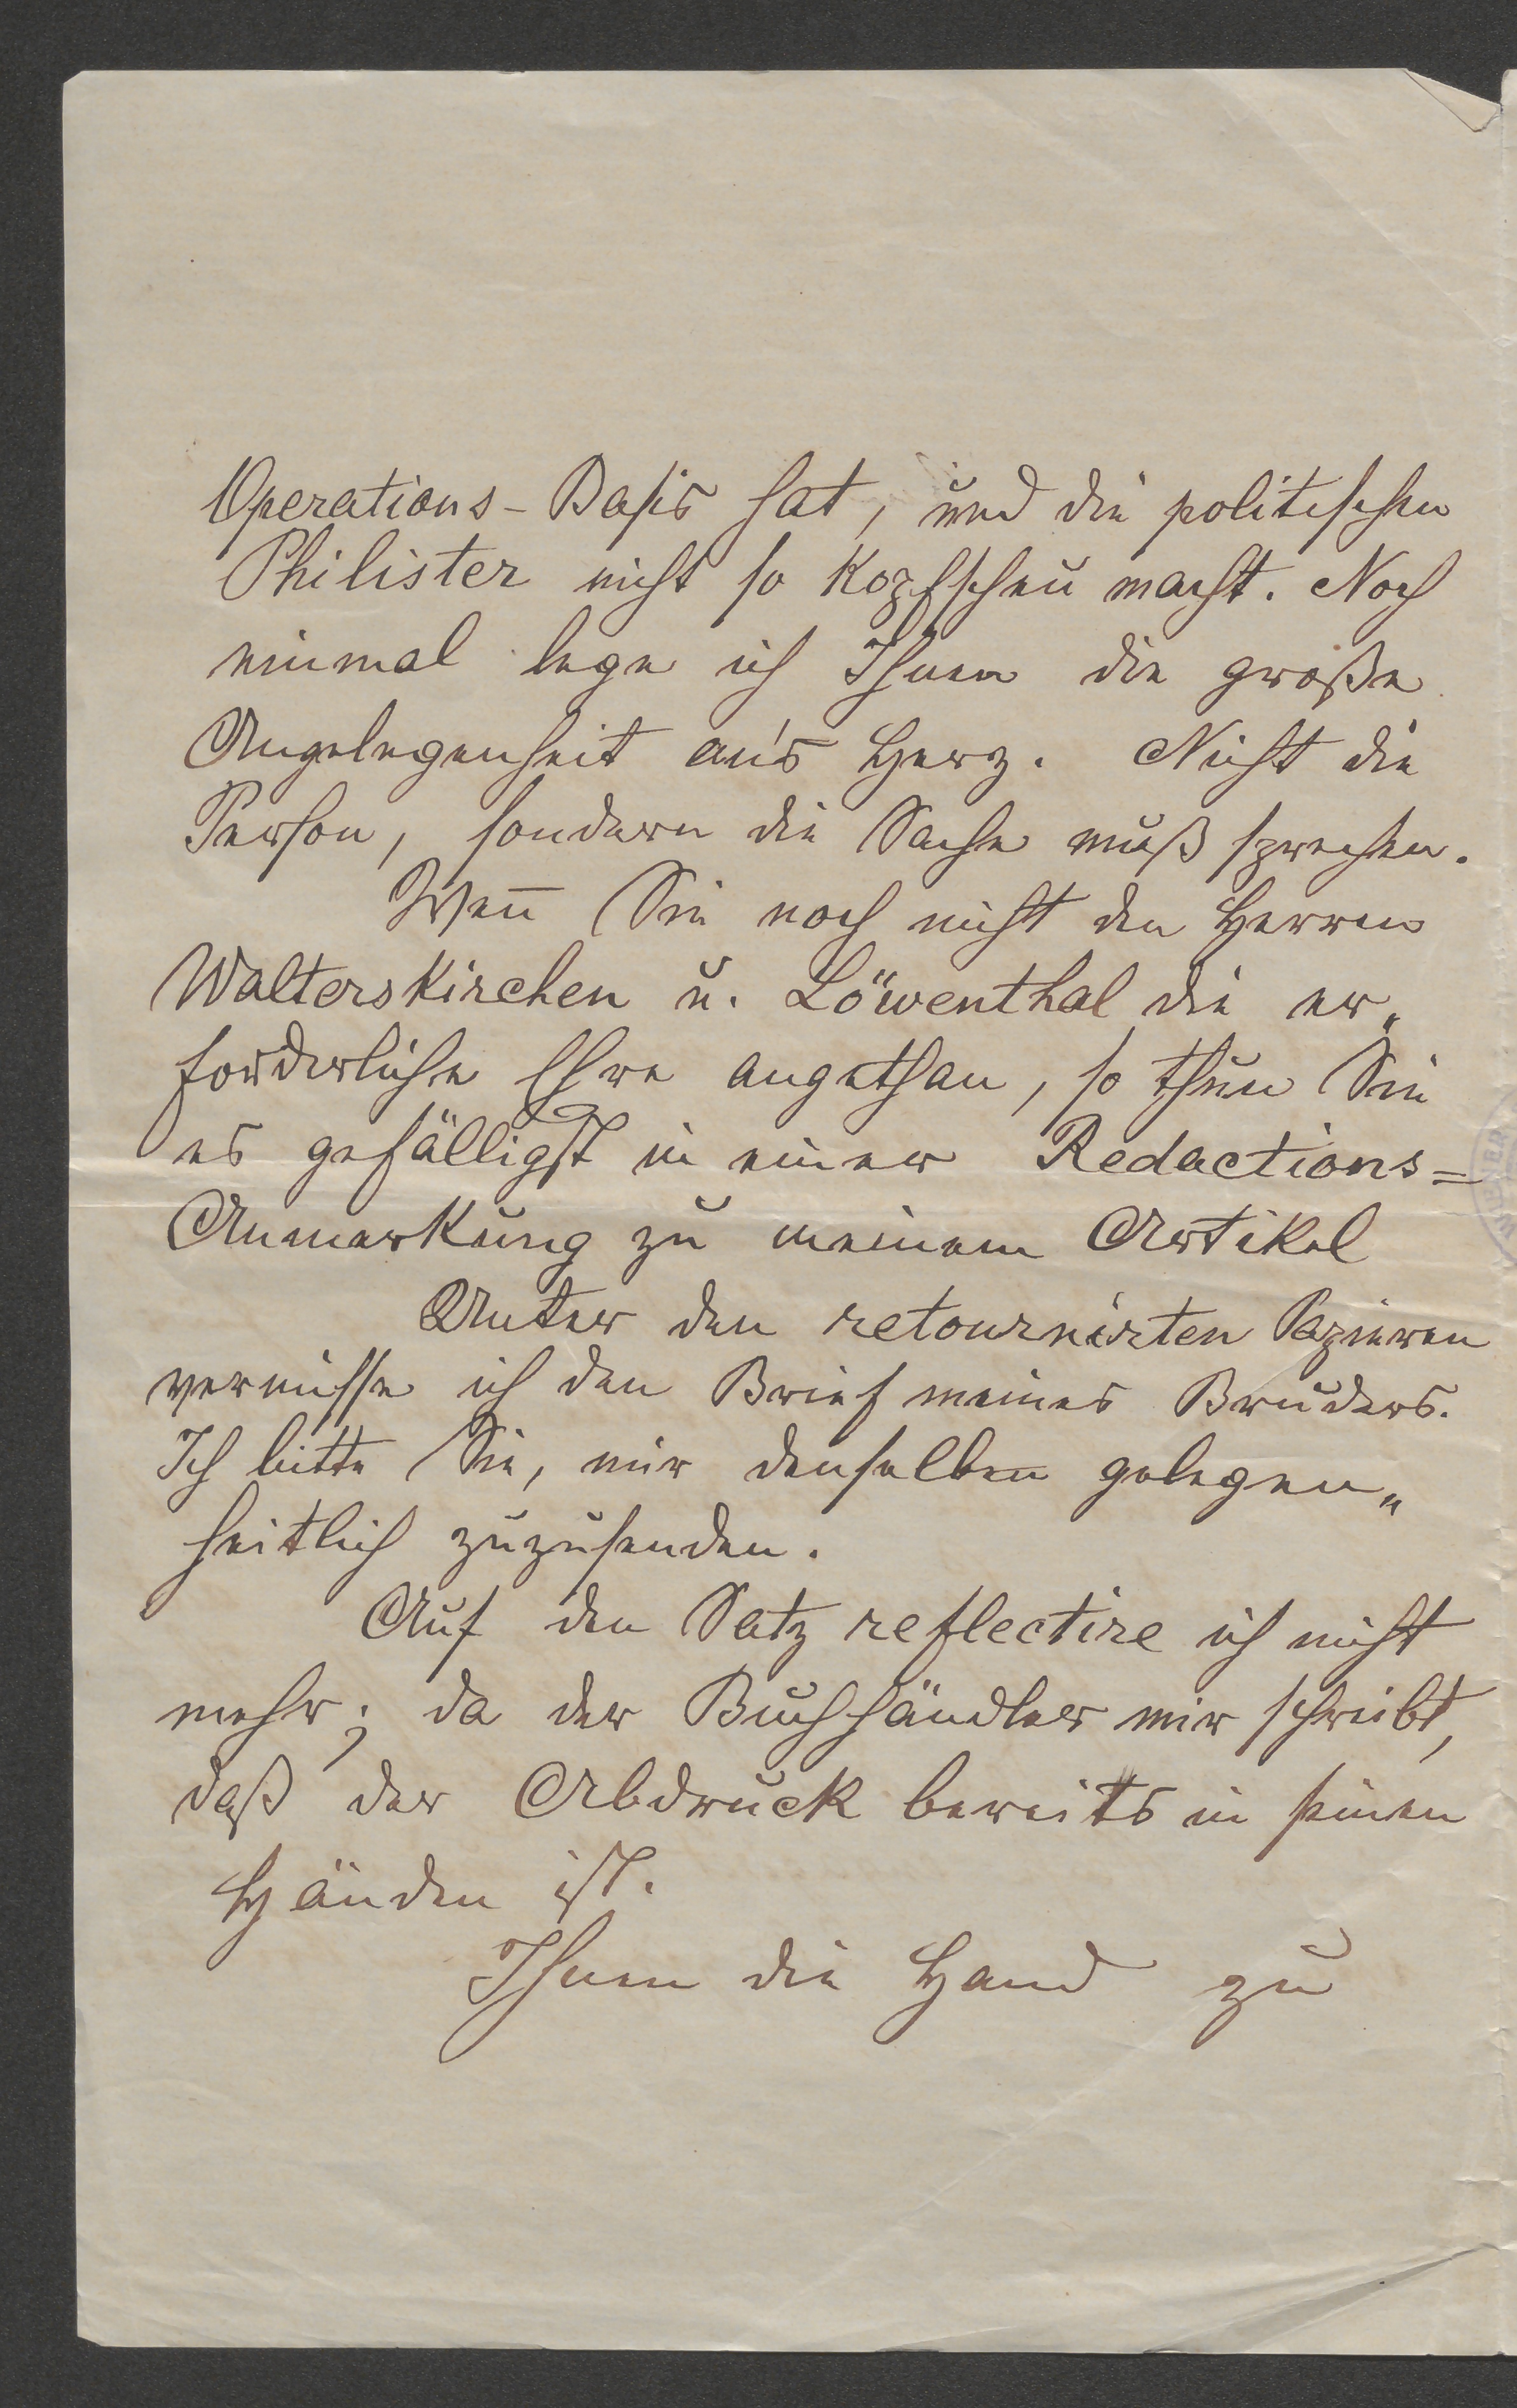 Operations-Basis hat, und die politischen
Philister nicht so kopfscheu macht. Noch
einmal lege ich Ihnen die große
Angelegenheit an's Herz. Nicht die
Person, sondern die Sache muß sprechen.
Wen̅ Sie noch nicht den Herren
Walterskirchen u. Löwenthal die er„
forderliche Ehre angethan, so thun Sie
es gefälligst in einer Redactions=
Anmerkung zu meinem Artikel
Unter den retournirten Papieren
vermisse ich den Brief meines Bruders.
Ich bitte Sie, mir denselben gelegen„
heitlich zuzusenden.
Auf den Satz reflectire ich nicht
mehr; da der Buchhändler mir schreibt,
daß der Abdruck bereits in seinen
Händen ist.
Ihnen die Hand zu